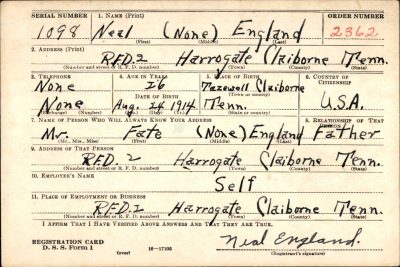 SERIAL NUMBER 1. NAME (Print) ORDER NUMBER
1098 Neal (None) England 2362
(First) (Middle) (Last)
2. ADDRESS (Print)
R.F.D. 2 Harrogate Claiborne Tenn.
(Number and street or R. F. D. number) (Town) (County) (State)
3. TELEPHONE 4. AGE IN YEARS 5. PLACE OF BIRTH 6. COUNTRY OF CITIZENSHIP
None 26 Tazewell Claiborne
DATE OF BIRTH (Town or county)
None Aug. 24 1914 Tenn. U.S.A.
(Exchange) (Number) (Mo.) (Day) (Yr.) (State or country)
7. NAME OF PERSON WHO WILL ALWAYS KNOW YOUR ADDRESS 8. RELATIONSHIP OF THAT PERSON
Mr. Fate (None) England Father
(Mr., Mrs., Miss) (First) (Middle) (Last)
9. ADDRESS OF THAT PERSON
R.F.D. 2 Harrogate Claiborne Tenn.
(Number and street or R. F. D. number) (Town) (County) (State)
10. EMPLOYER'S NAME
Self
11. PLACE OF EMPLOYMENT OR BUSINESS
R.F.D. 2 Harrogate Claiborne Tenn.
(Number and street or R. F. D. number) (Town) (County) (State)
I AFFIRM THAT I HAVE VERIFIED ABOVE ANSWERS AND THAT THEY ARE TRUE.
REGISTRATION CARD Neal England.
D. S. S. Form 1 (over) 16—17105 (Registrant's signature)